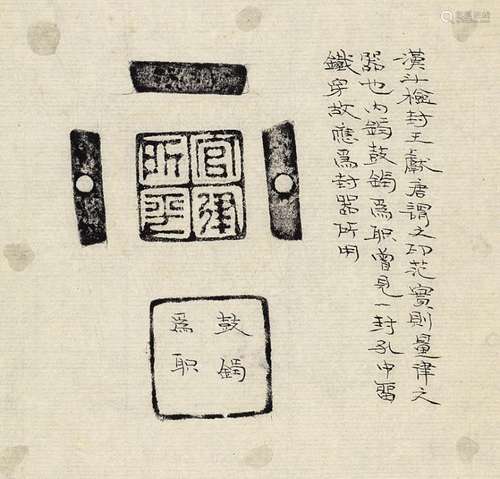 漢斗檢封王獻唐謂之印范實則量律之
器也內鐫鼓鑄爲职曾見一封孔中留
鐵穿故應爲封器所用
官律
所平
鼓鑄
爲职